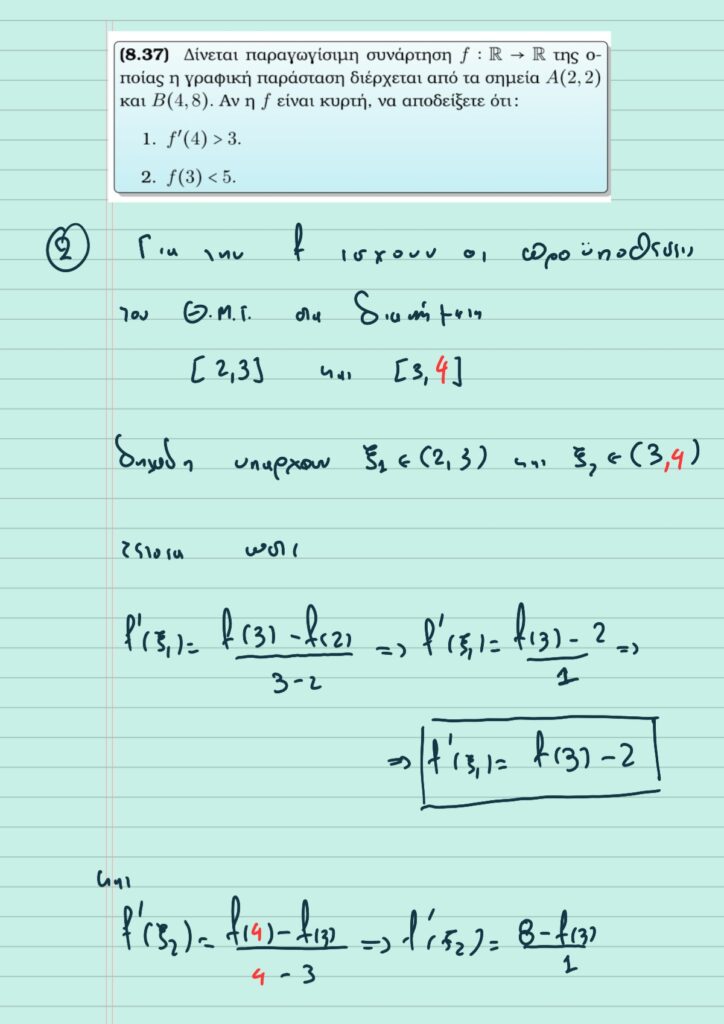 (8.37) Δίνεται παραγωγίσιμη συνάρτηση f : ℝ → ℝ της ο-
ποίας η γραφική παράσταση διέρχεται από τα σημεία A(2, 2)
και B(4, 8). Αν η f είναι κυρτή, να αποδείξετε ότι:
1. f′(4) > 3.
2. f(3) < 5.
② Για την f ισχουν οι προϋποθεσεις
του Θ.Μ.Τ. στα διαστήματα
[2,3] και [3,4]
δηλαδη υπαρχουν ξ₁ ∈ (2,3) και ξ₂ ∈ (3,4)
τετοια ωστε
f'(ξ₁) = (f(3) - f(2))/(3-2) => f'(ξ₁) = (f(3) - 2)/1 =>
=> f'(ξ₁) = f(3) - 2
και
f'(ξ₂) = (f(4) - f(3))/(4 - 3) => f'(ξ₂) = (8 - f(3))/1